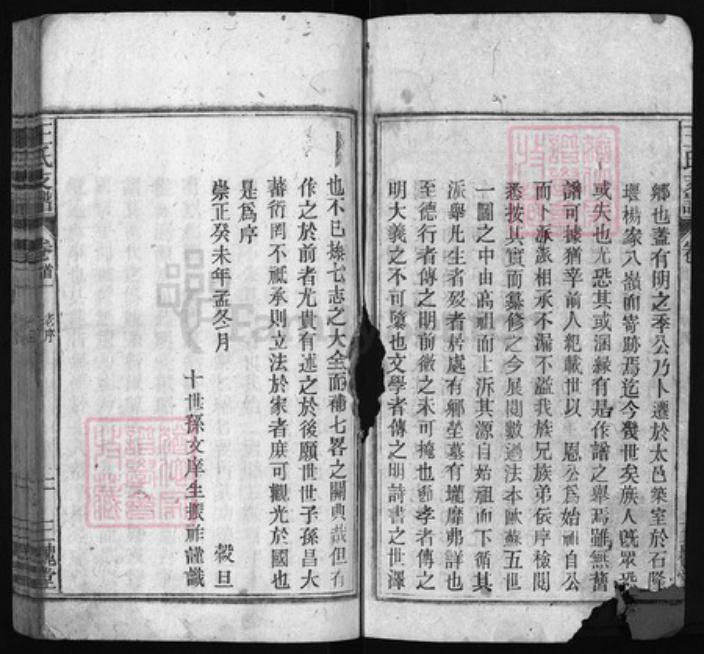 鄉也蓋有明之季公乃卜遷於太邑築室於石隆
堰楊家八嶺而寄跡焉迄今幾世矣族人既眾恐
或失也尤恐其或溷緣有是作譜之舉焉雖無舊
譜可據猶幸前人紀載世以 恩公為始祖自公
而下派派相承不漏不溢我族兄族弟依序檢閱
悉按其實而纂修之今展閱數過法本歐蘇五世
一圖之中由高祖而上泝其源自始祖而下循其
派舉凡生者歿者居處有鄉塋墓有壠靡弗詳也
至德行者傳之明前徽之未可掩也節孝者傳之
明大義之不可隳也文學者傳之明詩書之世澤
也不已媲七志之大全而補七畧之闕典哉但有
作之於前者尤貴有述之於後願世世子孫昌大
蕃衍罔不祗承則立法於家者庶可觀光於國也
是爲序
崇正癸未年孟冬月 穀旦
十世孫文庠生振祚謹識
王氏支譜 卷首 老序 二 三槐堂
王氏支譜 卷